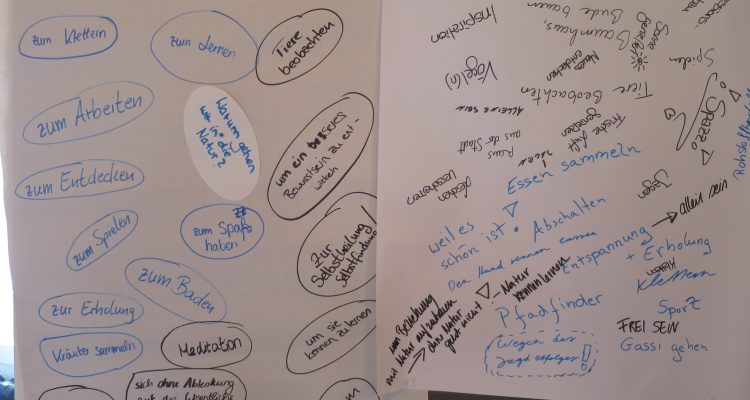 zum Klettern
zum Lernen
Tiere
beobachten
zum Arbeiten
Warum gehen
wir in die
Natur?
um ein besseres
Bewusstsein zu ent-
wickeln
zum Entdecken
zum Spielen
zum Spaß
haben
Zur
Selbstheilung/
Selbstfindung
zum Baden
zur Erholung
um sie
kennen zu lernen
Kräuter sammeln
Meditation
sich ohne Ablenkung
auf das Wesentliche
Inspiration
Baumhaus,
Bude bauen
Sonne
genießen
Neues
entdecken
Vögel(n)
Spielen
Tiere Beobachten
alleine sein
Frische Luft
genießen
Raus
aus der Stadt
Essen sammeln
Leichen
verscharren
Jagen
weil es
schön ist
Abschalten
allein sein
Den Hund rennen lassen
Entspannung
+ Erholung
Natur
kennenlernen
Klettern
Pfadfinder
Sport
um Beziehung
mit Natur aufzubauen
ohne Natur
geht nicht!
FREI SEIN
Wegen des
Jagderfolges!
Gassi gehen